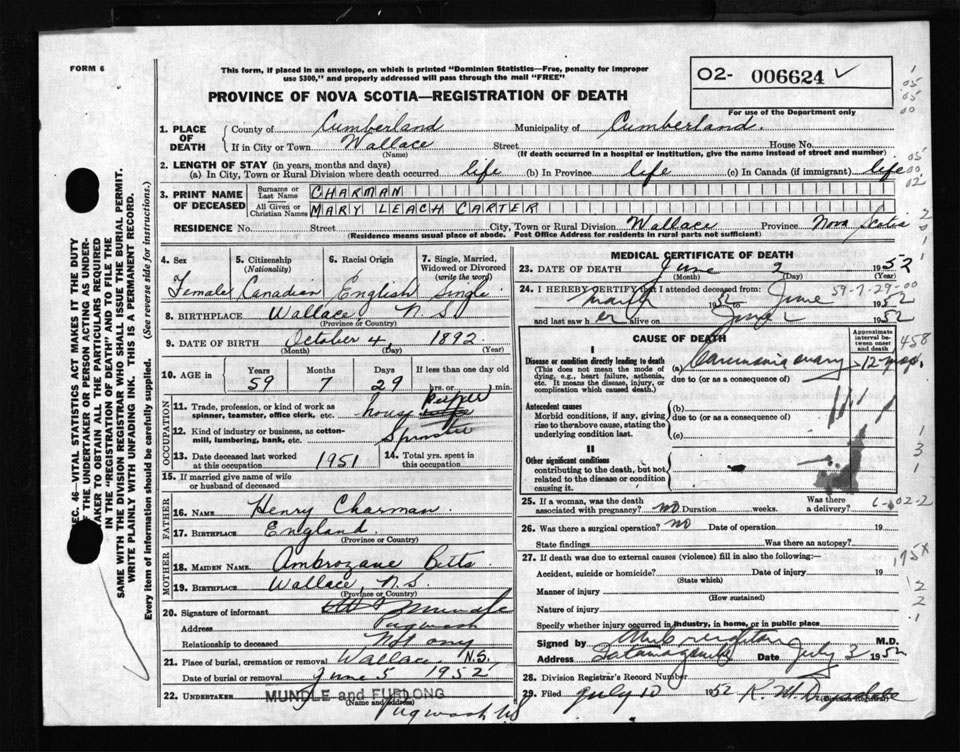 FORM 6
This form, if placed in an envelope, on which is printed "Dominion Statistics—Free, penalty for improper
use $300," and properly addressed will pass through the mail "FREE"
02- 006624 ✓
For use of the Department only
PROVINCE OF NOVA SCOTIA—REGISTRATION OF DEATH
1. PLACE OF DEATH { County of Cumberland Municipality of Cumberland.
If in City or Town Wallace Street House No.
(Name) (If death occurred in a hospital or institution, give the name instead of street and number)
2. LENGTH OF STAY (in years, months and days)
(a) In City, Town or Rural Division where death occurred life (b) In Province life (c) In Canada (if immigrant) life
3. PRINT NAME OF DECEASED { Surname or Last Name CHARMAN
All Given or Christian Names MARY LEACH CARTER
RESIDENCE No. Street City, Town or Rural Division Wallace Province Nova Scotia
(Residence means usual place of abode. Post Office Address for residents in rural parts not sufficient)
4. Sex 5. Citizenship (Nationality) 6. Racial Origin 7. Single, Married, Widowed or Divorced (write the word)
Female Canadian English Single
8. BIRTHPLACE Wallace N.S
(Province or Country)
9. DATE OF BIRTH October 4, 1892
(Month) (Day) (Year)
10. AGE in Years Months Days If less than one day old
59 7 29 hrs. or min.
OCCUPATION
11. Trade, profession, or kind of work as spinner, teamster, office clerk, etc. house keeper
12. Kind of industry or business, as cotton-mill, lumbering, bank, etc. Spinster
13. Date deceased last worked at this occupation 1951 14. Total yrs. spent in this occupation
15. If married give name of wife or husband of deceased
FATHER
16. NAME Henry Charman
17. BIRTHPLACE England
(Province or Country)
MOTHER
18. MAIDEN NAME Ambrozane Betts
19. BIRTHPLACE Wallace N.S.
(Province or Country)
20. Signature of informant Mundle
Address Pugwash
Relationship to deceased Not any
21. Place of burial, cremation or removal Wallace N.S.
Date of burial or removal June 5 1952
22. UNDERTAKER MUNDLE and FURLONG
(Name and Address)
Pugwash NS
MEDICAL CERTIFICATE OF DEATH
23. DATE OF DEATH June 2 1952
(Month) (Day)
24. I HEREBY CERTIFY that I attended deceased from: 59-7-29-00
March 52 to June 1952
and last saw h er alive on June 2 1952
CAUSE OF DEATH
Approximate interval between onset and death
I
Disease or condition directly leading to death
(This does not mean the mode of dying, e.g., heart failure, asthenia, etc. It means the disease, injury, or complication which caused death.)
(a) Carcinoma ovary 12 mos.
due to (or as a consequence of)
Antecedent causes
Morbid conditions, if any, giving rise to the above cause, stating the underlying condition last.
(b)
due to (or as a consequence of)
(c)
II
Other significant conditions
contributing to the death, but not related to the disease or condition causing it.
25. If a woman, was the death associated with pregnancy? no Duration weeks. Was there a delivery?
26. Was there a surgical operation? no Date of operation 19
State findings Was there an autopsy?
27. If death was due to external causes (violence) fill in also the following:—
Accident, suicide or homicide? Date of injury 19
(State which)
Manner of injury
(How sustained)
Nature of injury
Specify whether injury occurred in industry, in home, or in public place
Signed by M.D.
Address Tatamagouche Date July 3 1952
28. Division Registrar's Record Number
29. Filed July 10 1952 K. M.
SEC. 46—VITAL STATISTICS ACT MAKES IT THE DUTY
OF THE UNDERTAKER OR PERSON ACTING AS UNDER-
TAKER TO OBTAIN ALL THE PARTICULARS REQUIRED
IN THE "REGISTRATION OF DEATH" AND TO FILE THE
SAME WITH THE DIVISION REGISTRAR WHO SHALL ISSUE THE BURIAL PERMIT.
WRITE PLAINLY WITH UNFADING INK. THIS IS A PERMANENT RECORD.
Every item of information should be carefully supplied. (See reverse side for instructions.)